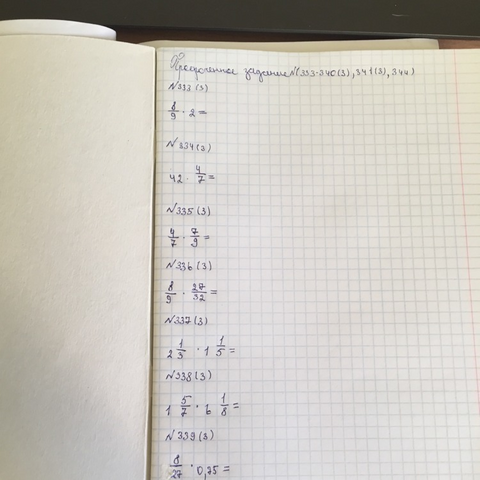 задание №(333-340(3), 341(3), 344)
№333(3)
8/9 · 2 =
№334(3)
42 · 4/7 =
№335(3)
4/7 · 7/9 =
№336(3)
8/9 · 27/32 =
№337(3)
2 1/3 · 1 1/5 =
№338(3)
1 5/7 · 6 1/8 =
№339(3)
8/27 · 0,75 =